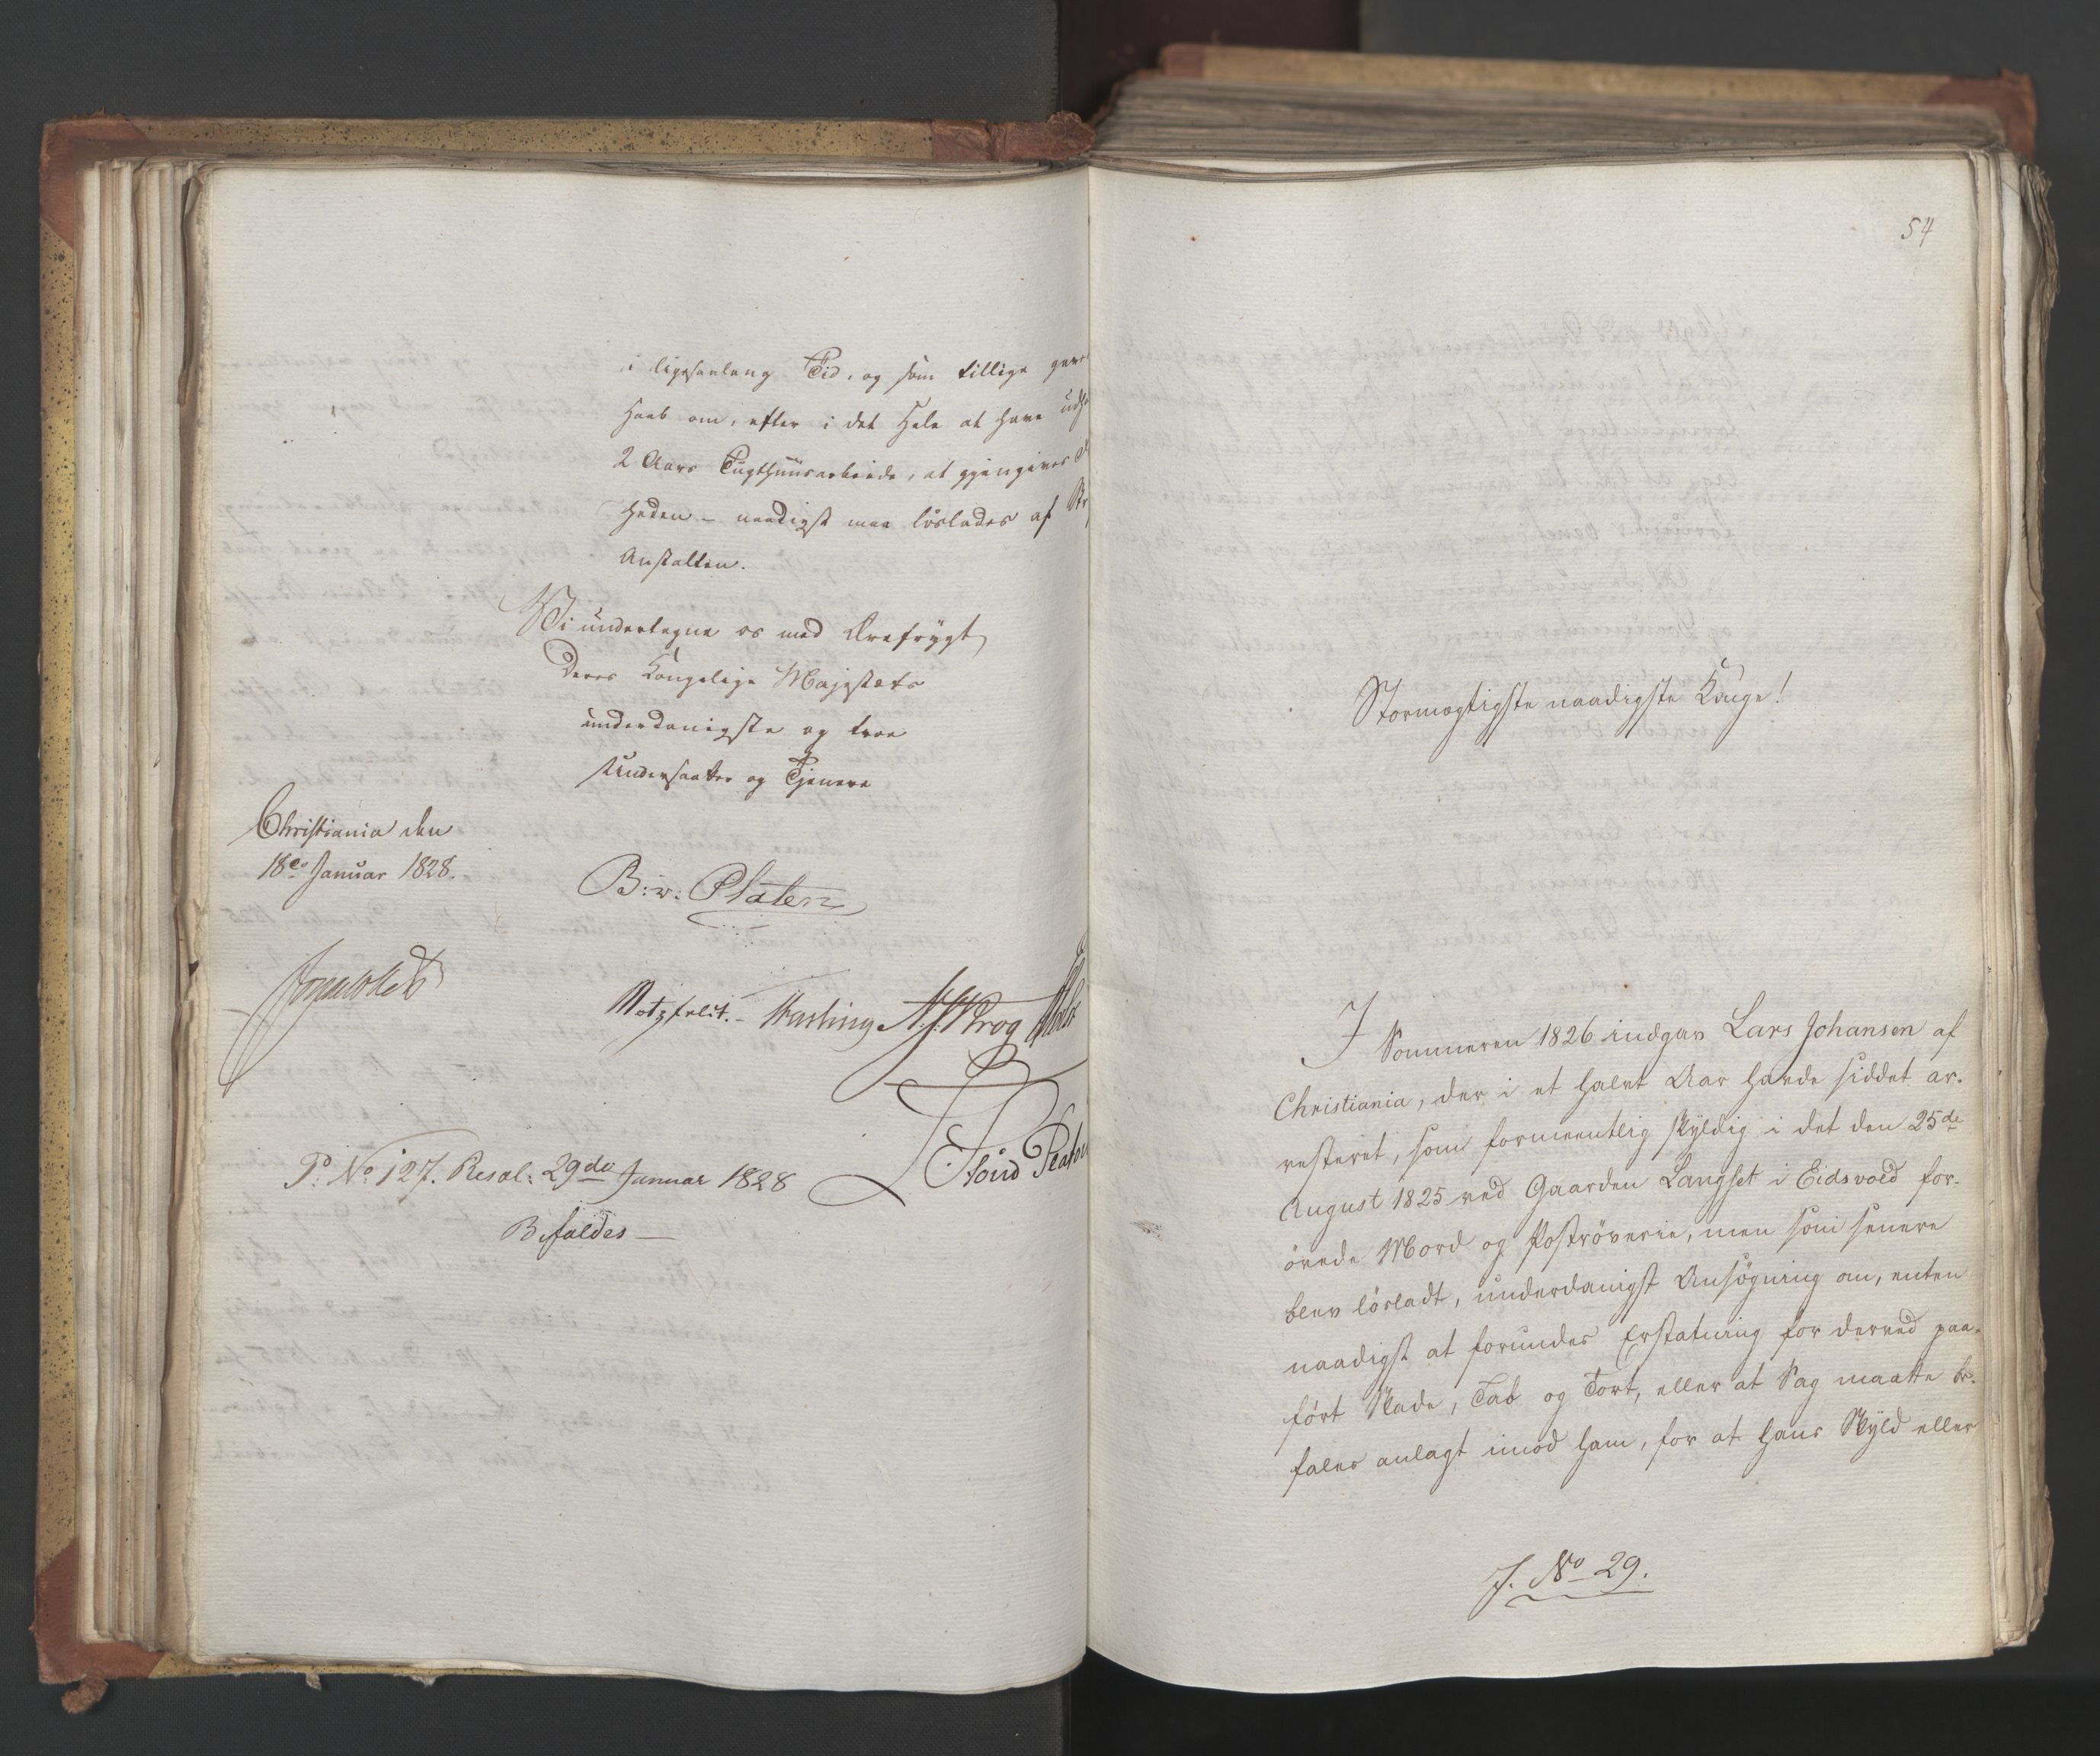 i ligesaalang Tid, og som tillige
Haab om, efter i det Hele at have
2 Aars Tugthuusarbeide, at gjengives
Heden – naadigst maa löslades af
Anstalten.
Vi undertegne os med Ærefrygt,
Deres Kongelige Majestæts
underdanigste og troe
Undersaatter og Tjenere
Christiania den
18de Januar 1828.
B: v: Platen
Motzfeldt. – Fasting
P: No 127. Resol: 29de Januar 1828
Bifaldes –
54
Stormægtigste naadigste Konge!
I Sommeren 1826 indgav Lars Johansen af
Christiania, der i et halvt Aar havde siddet ar-
resteret, som formeentlig skyldig i det den 25de
August 1825 ved Gaarden Langset i Eidsvold for-
övede Mord og Poströverie, men som senere
blev lösladt, underdanigst Ansögning om, enten
naadigst at forundes Erstatning for derved paa-
fört Skade, Tab og Tort, eller at Sag maatte be-
fales anlagt imod ham, for at hans Skyld eller
J. No 29.